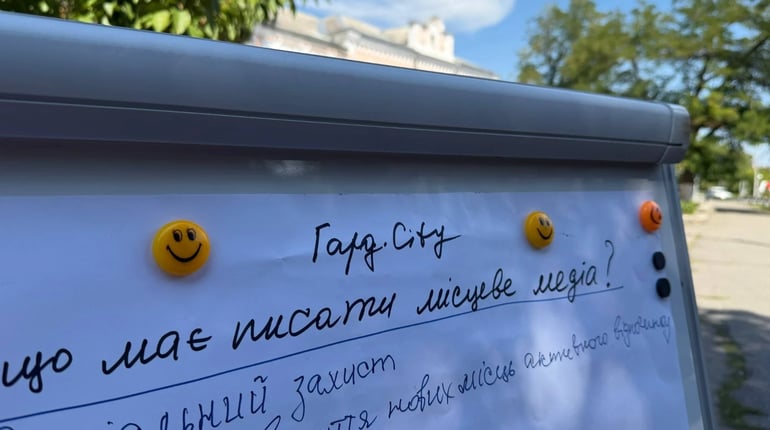 Гард.City
що має писати місцеве медіа?
захист
нових місць активного відпочинку